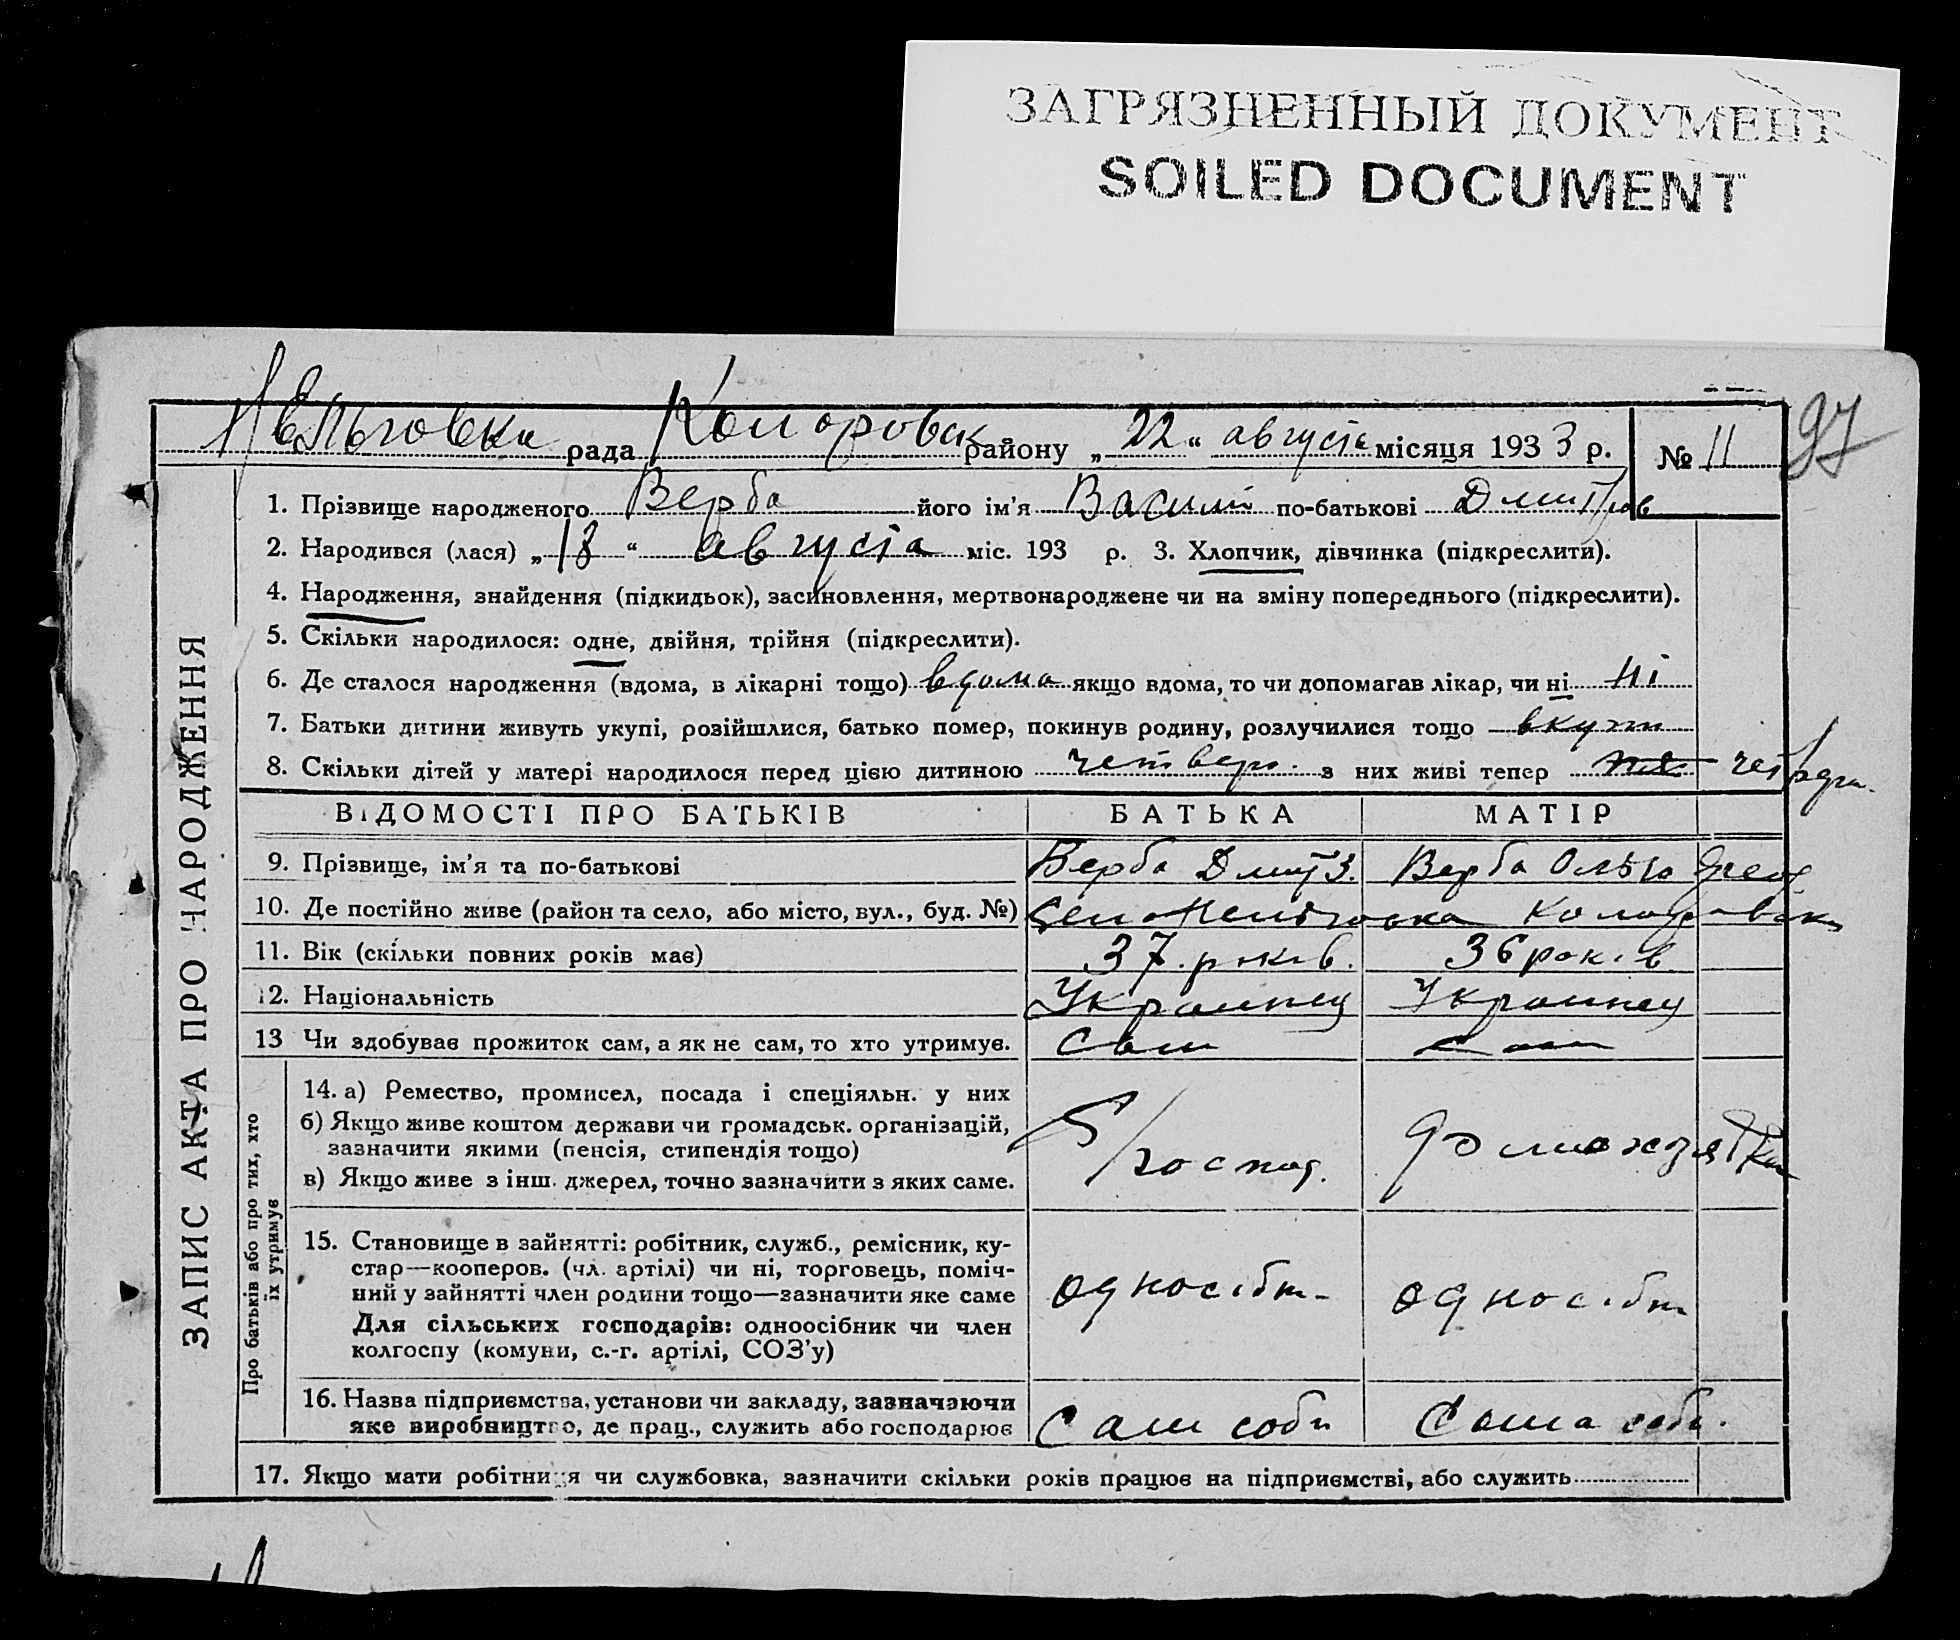 ЗАГРЯЗНЕННЫЙ ДОКУМЕНТ
SOILED DOCUMENT
97
рада району „22“ августа місяця 1933 р. № 11
1. Прізвище народженого Верба його ім'я Василій по-батькові Дмитров
2. Народився (лася) „18“ августа міс. 193 р. 3. Хлопчик, дівчинка (підкреслити).
4. Народження, знайдення (підкидьок), засиновлення, мертвонароджене чи на зміну попереднього (підкреслити).
5. Скільки народилося: одне, двійня, трійня (підкреслити).
6. Де сталося народження (вдома, в лікарні тощо) вдома якщо вдома, то чи допомагав лікар, чи ні ні
7. Батьки дитини живуть укупі, розійшлися, батько помер, покинув родину, розлучилися тощо вкупи
8. Скільки дітей у матері народилося перед цією дитиною четверо з них живі тепер
ЗАПИС АКТА ПРО НАРОДЖЕННЯ
ВІДОМОСТІ ПРО БАТЬКІВ БАТЬКА МАТІР
9. Прізвище, ім'я та по-батькові Верба Дмит З. Верба Ольга
10. Де постійно живе (район та село, або місто, вул., буд. №)
11. Вік (скільки повних років має) 37 років. 36 років
12. Національність Украинец Украинец
13 Чи здобуває прожиток сам, а як не сам, то хто утримує. Сам
Про батьків або про тих, хто їх утримує
14. а) Ремество, промисел, посада і спеціяльн. у них
б) Якщо живе коштом держави чи громадськ. організацій,
зазначити якими (пенсія, стипендія тощо)
в) Якщо живе з інш. джерел, точно зазначити з яких саме.
С/господ. домохозяйка
15. Становище в зайнятті: робітник, служб., ремісник, ку-
стар—кооперов. (чл. артілі) чи ні, торговець, поміч-
ний у зайнятті член родини тощо—зазначити яке саме
Для сільських господарів: одноосібник чи член
колгоспу (комуни, с.-г. артілі, СОЗ'у)
односібн. односібн
16. Назва підприємства, установи чи закладу, зазначаючи
яке виробництво, де прац., служить або господарює
Сам соби Сама соби.
17. Якщо мати робітниця чи службовка, зазначити скільки років працює на підприємстві, або служить